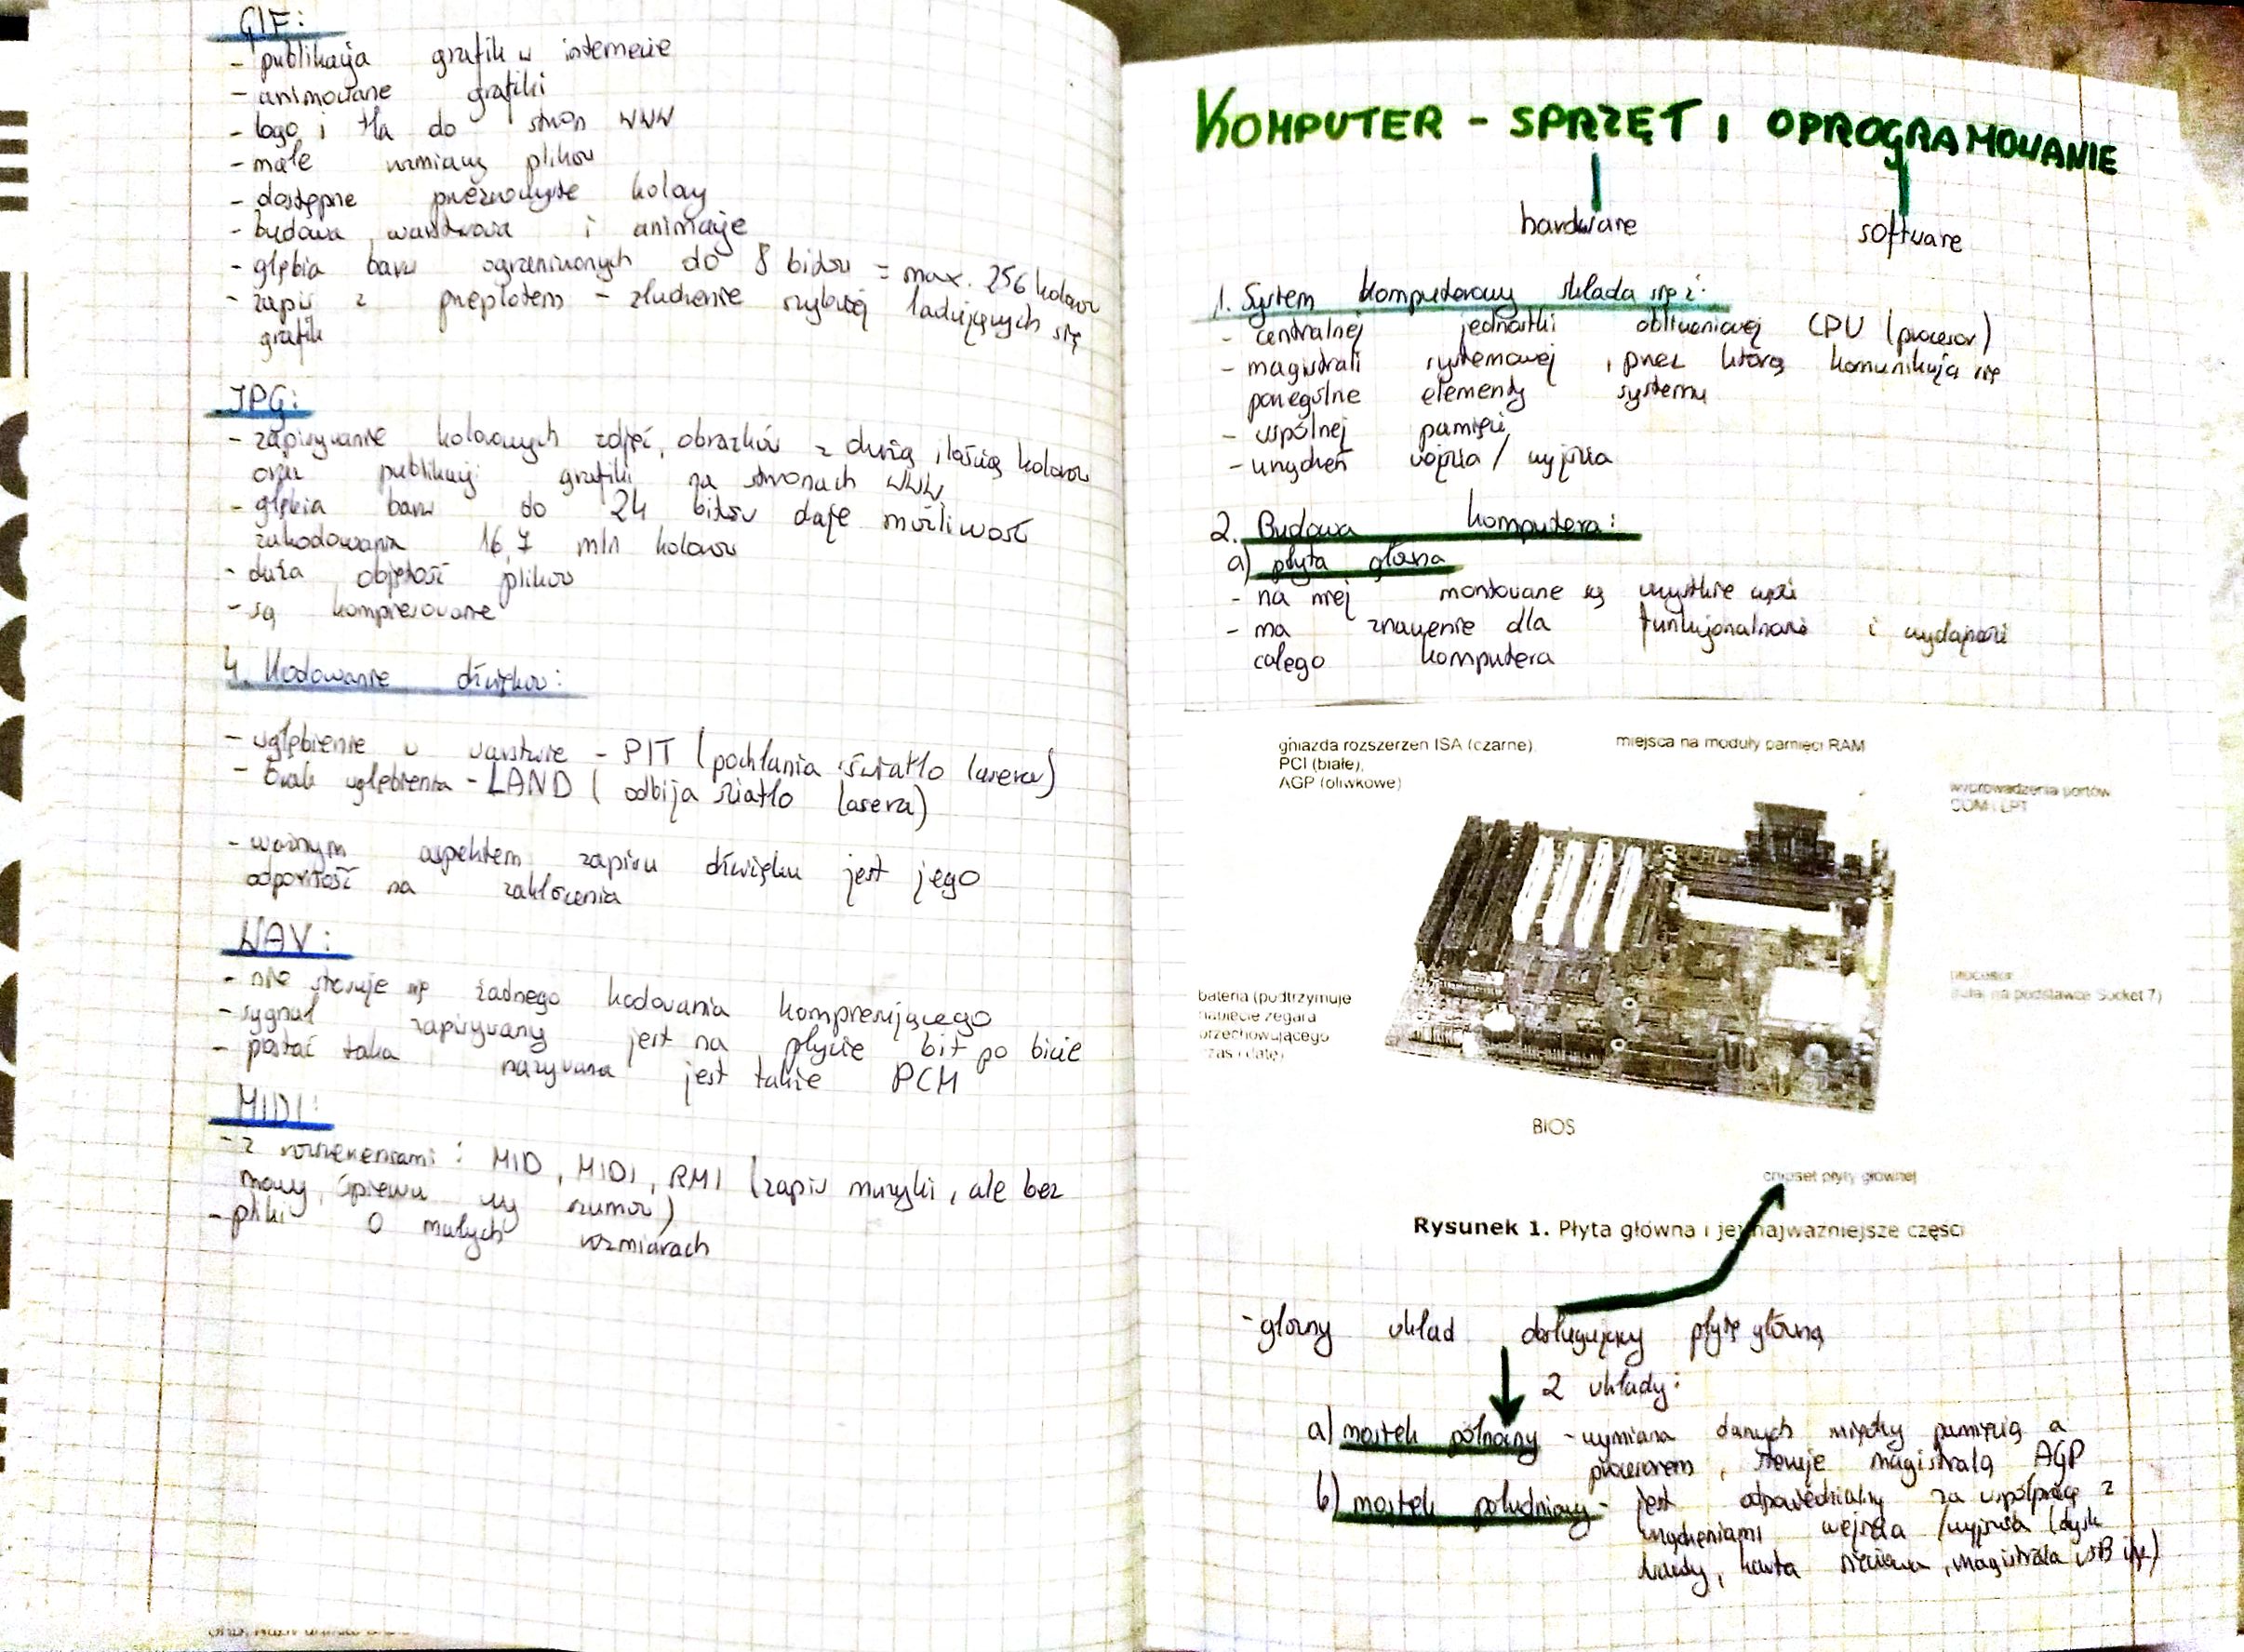 GIF:
- publikacja grafik w internecie
- animowane grafiki
- logo i tła do stron WWW
- małe rozmiary plików
- dostępne przezroczyste kolory
- budowa warstwowa i animacje
- głębia barw ograniczonych do 8 bitów = max. 256 kolorów
- zapis z przeplotem - złudzenie szybciej ładujących się
grafik
JPG:
- zapisywanie kolorowych zdjęć, obrazków z dużą ilością kolorów
oraz publikacji grafiki na stronach WWW
- głębia barw do 24 bitów daje możliwość
zakodowania 16,7 mln kolorów
- duża objętość plików
- są kompresowane
4. Kodowanie dźwięków:
- wgłębienie w warstwie - PIT (pochłania światło lasera)
- brak wgłębienia - LAND (odbija światło lasera)
- ważnym aspektem zapisu dźwięku jest jego
odporność na zakłócenia
WAV:
- nie stosuje się żadnego kodowania kompresującego
- sygnał zapisywany jest na płycie bit po bicie
- postać taka nazywana jest także PCM
MIDI:
- z rozszerzeniami: MID, MIDI, RMI (zapis muzyki, ale bez
mowy, śpiewu czy szumów)
- pliki o małych rozmiarach
KOMPUTER - SPRZĘT I OPROGRAMOWANIE
hardware software
1. System komputerowy składa się z:
- centralnej jednostki obliczeniowej CPU (procesor)
- magistrali systemowej, przez którą komunikują się
poszególne elementy systemu
- wspólnej pamięci
- urządzeń wejścia / wyjścia
2. Budowa komputera:
a) płyta główna
- na niej montowane są wszystkie części
- ma znaczenie dla funkcjonalności i wydajności
całego komputera
gniazda rozszerzeń ISA (czarne),
PCI (białe),
AGP (oliwkowe)
miejsca na moduły pamięci RAM
wyprowadzenia portów
COM i LPT
bateria (podtrzymuje
napięcie zegara
przechowującego
czas i datę)
procesor
(tutaj na podstawce Socket 7)
BIOS
chipset płyty głównej
Rysunek 1. Płyta główna i jej najważniejsze części
- główny układ obsługujący płytę główną
2 układy:
a) mostek północny - wymiana danych między pamięcią a
procesorem, steruje magistralą AGP
b) mostek południowy - jest odpowiedzialny za współpracę z
urządzeniami wejścia / wyjścia (dysk
twardy, karta sieciowa, magistrala USB itp.)